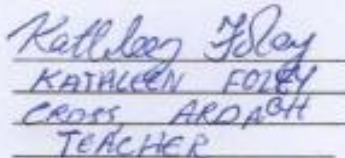 Kathleen Foley
KATHLEEN FOLEY
CROSS ARDAGH
TEACHER